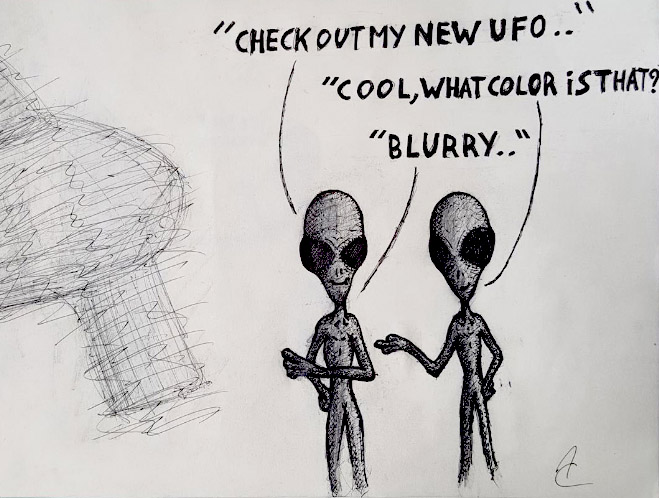 "CHECK OUT MY NEW UFO.."
"COOL, WHAT COLOR iS THAT?
"BLURRY.."